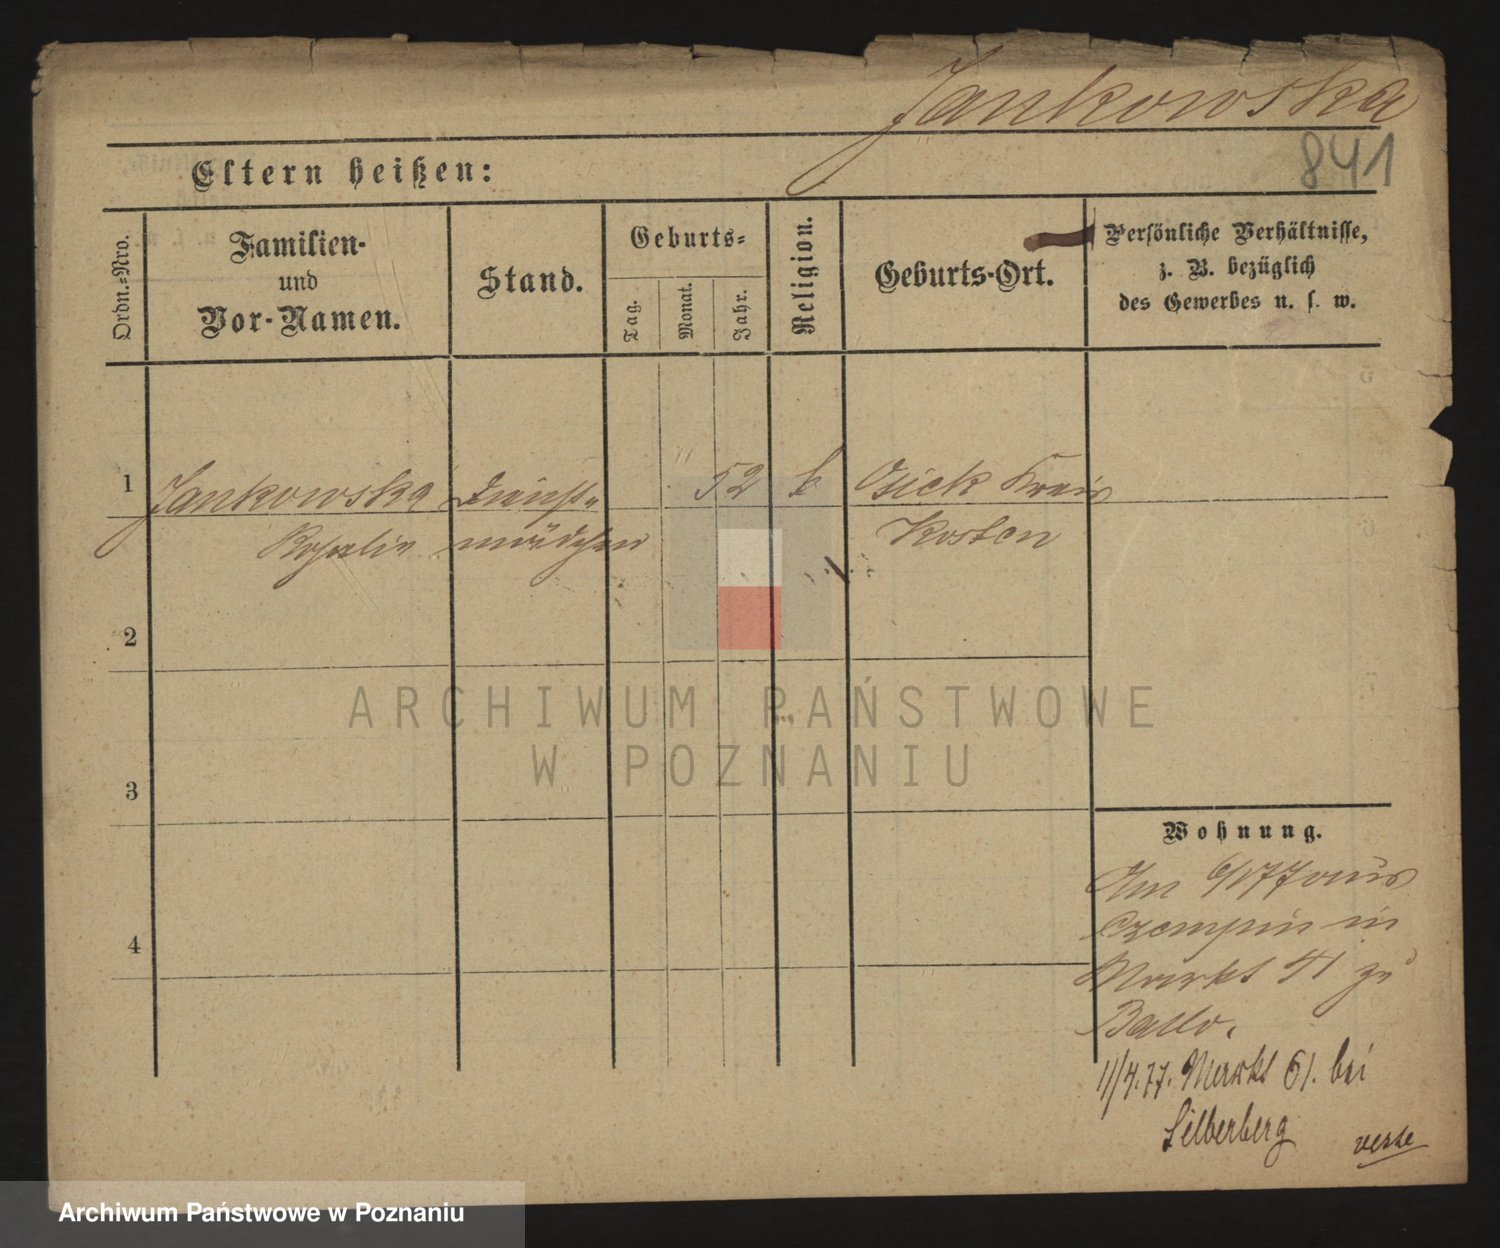 Jankowska
841
Eltern heißen:
Ordn.-Nro.
Familien-
und
Vor-Namen.
Stand.
Geburts-
Tag.
Monat.
Jahr.
Religion.
Geburts-Ort.
Persönliche Verhältnisse,
z. B. bezüglich
des Gewerbes u. s. w.
1
Jankowska
Rosalie
Dienst-
mädchen
52
k
Osiek Kreis
Kosten
2
3
4
Wohnung.
Am 6/1 77 aus
Czempin in
Markt 41 zu
11/4.77. Markt 61. bei
Silberberg
verte
ARCHIWUM PAŃSTWOWE
W POZNANIU
Archiwum Państwowe w Poznaniu